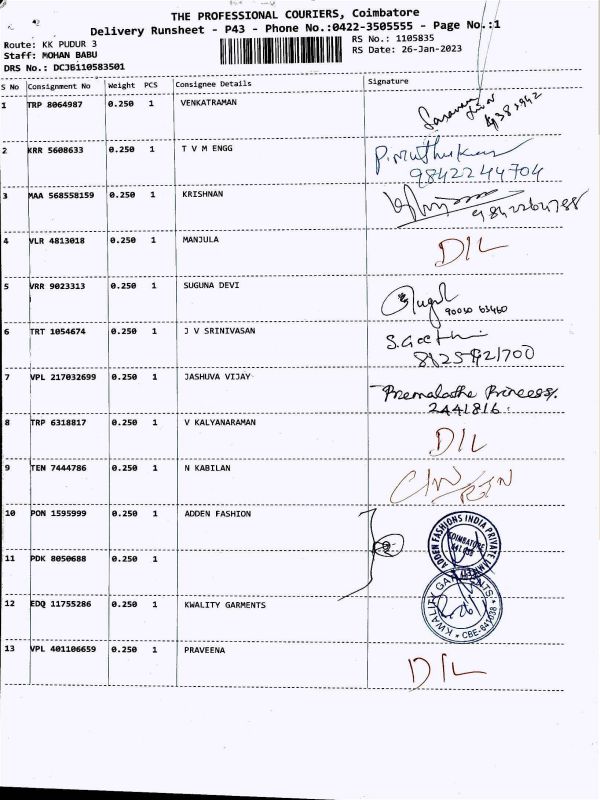 THE PROFESSIONAL COURIERS, Coimbatore
Delivery Runsheet - P43 - Phone No.:0422-3505555 - Page No.:1
Route: KK PUDUR 3
Staff: MOHAN BABU
DRS No.: DCJB110583501
RS No.: 1105835
RS Date: 26-Jan-2023
S No Consignment No Weight PCS Consignee Details Signature
1 TRP 8064987 0.250 1 VENKATRAMAN
2 KRR 5608633 0.250 1 T V M ENGG P.muthukumar
9842244704
3 MAA 568558159 0.250 1 KRISHNAN
4 VLR 4813018 0.250 1 MANJULA D/L
5 VRR 9023313 0.250 1 SUGUNA DEVI
6 TRT 1054674 0.250 1 J V SRINIVASAN S.Geetha
7 VPL 217032699 0.250 1 JASHUVA VIJAY Premalatha Princess
2441816
8 TRP 6318817 0.250 1 V KALYANARAMAN D/L
9 TEN 7444786 0.250 1 N KABILAN
10 PON 1595999 0.250 1 ADDEN FASHION ADDEN FASHIONS INDIA PRIVATE
COIMBATORE
11 PDK 8050688 0.250 1
12 EDQ 11755286 0.250 1 KWALITY GARMENTS KWALITY GARMENTS
CBE-641038
13 VPL 401106659 0.250 1 PRAVEENA D/L